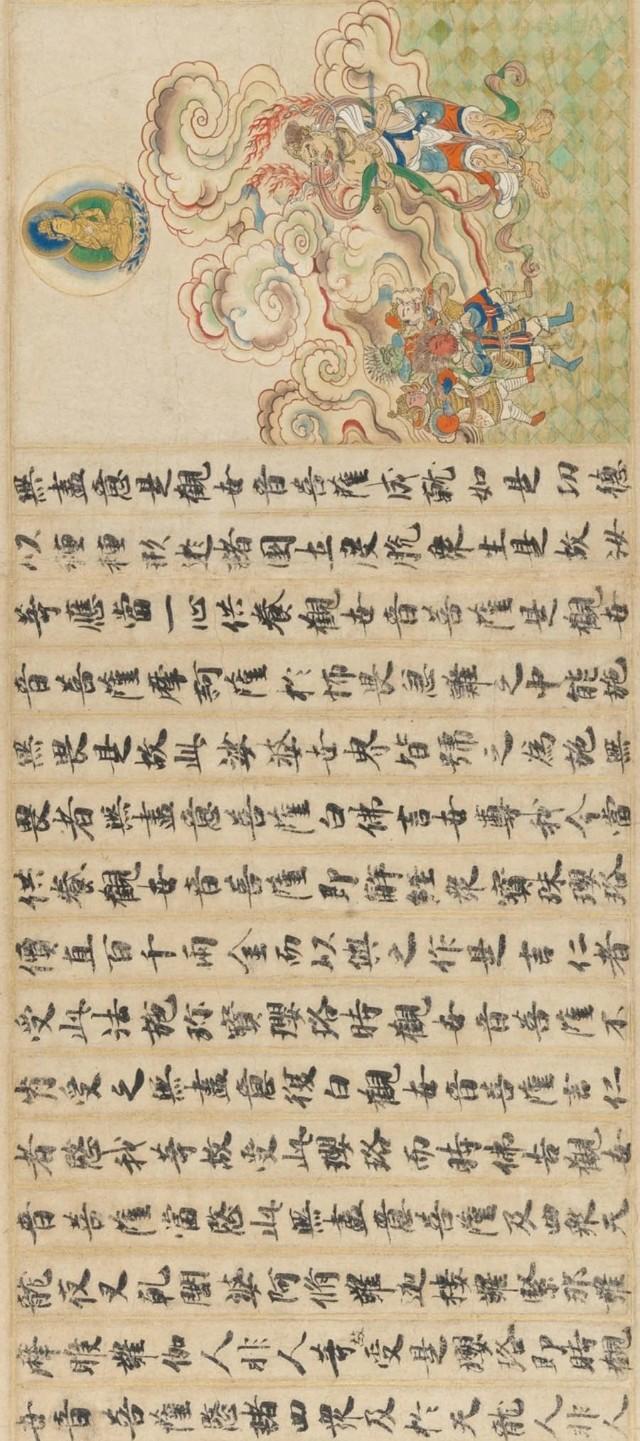 無盡意是觀世音菩薩成就如是功德
以種種形遊諸國土度脫衆生是故汝
等應當一心供養觀世音菩薩是觀世
音菩薩摩訶薩於怖畏急難之中能施
無畏是故此娑婆世界皆號之為施無
畏者無盡意菩薩白佛言世尊我今當
供養觀世音菩薩即解經衆寶珠瓔珞
價直百千兩金而以與之作是言仁者
受此法施珍寶瓔珞時觀世音菩薩不
肯受之無盡意復白觀世音菩薩言仁
者愍我等故受此瓔珞而時佛告觀世
音菩薩當愍此無盡意菩薩及四衆天
龍夜叉乾闥婆阿脩羅迦樓羅緊那羅
摩睺羅伽人非人等受是瓔珞即時觀
世音菩薩愍諸四衆及於天龍人非人